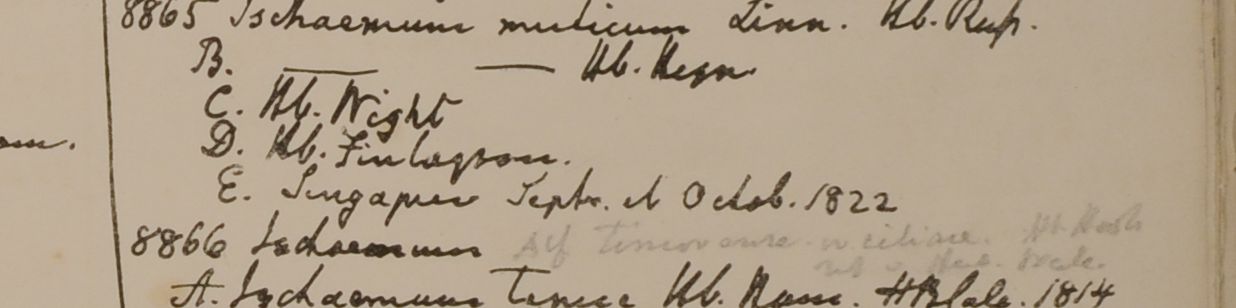 8865 Ischaemum muticum Linn. Hb. Rup.
B. ——— ——— Hb. Heyn.
C. Hb. Wight
D. Hb. Finlayson.
E. Singapur Septr. et Octob. 1822
8866 Ischaemum
A. Ischaemum Hb. H.B. Calc. 1814